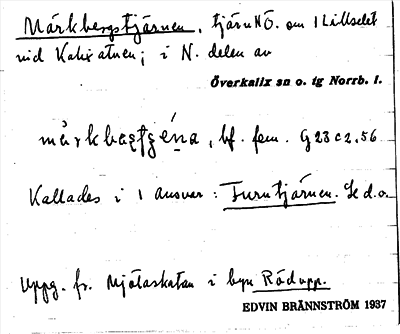 Märkbergstjärnen, tjärn NÖ. om 1 Lillselet
vid Kalixälven; i N. delen av
Överkalix sn o. tg Norrb. l.
bf. fem. G 23 c 2, 56
Kallades i 1 ansvar: Furutjärnen. Se d.o.
Uppg. fr. Mjötaskatan i byn Rödupp.
EDVIN BRÄNNSTRÖM 1937